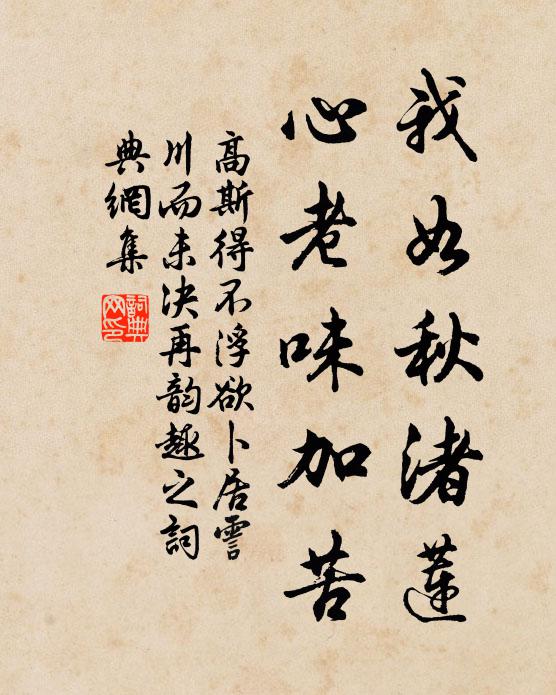 我如秋渚蓮
心老味加苦
高斯得不浮欲卜居霅
川而未决再韵趣之詞
典網集
詞典
网印